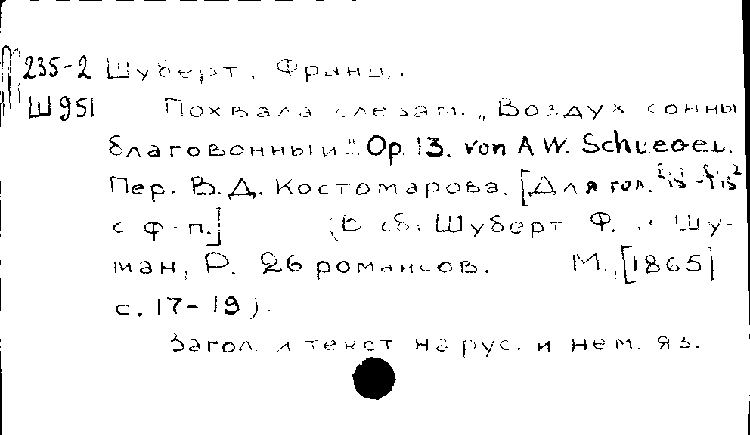 235-2 Шуберт, Франц.
Ш951 Похвала слезам. „Воздух сонный
благовонный". Op. 13. von A W. Schlegel.
Пер. В. Д. Костомарова. [Для гол.
с ф-п.] (В сб. Шуберт Ф. и Шу-
ман, Р. 26 романсов. М., [1865]
с. 17-19).
Загол. и текст на рус. и нем. яз.